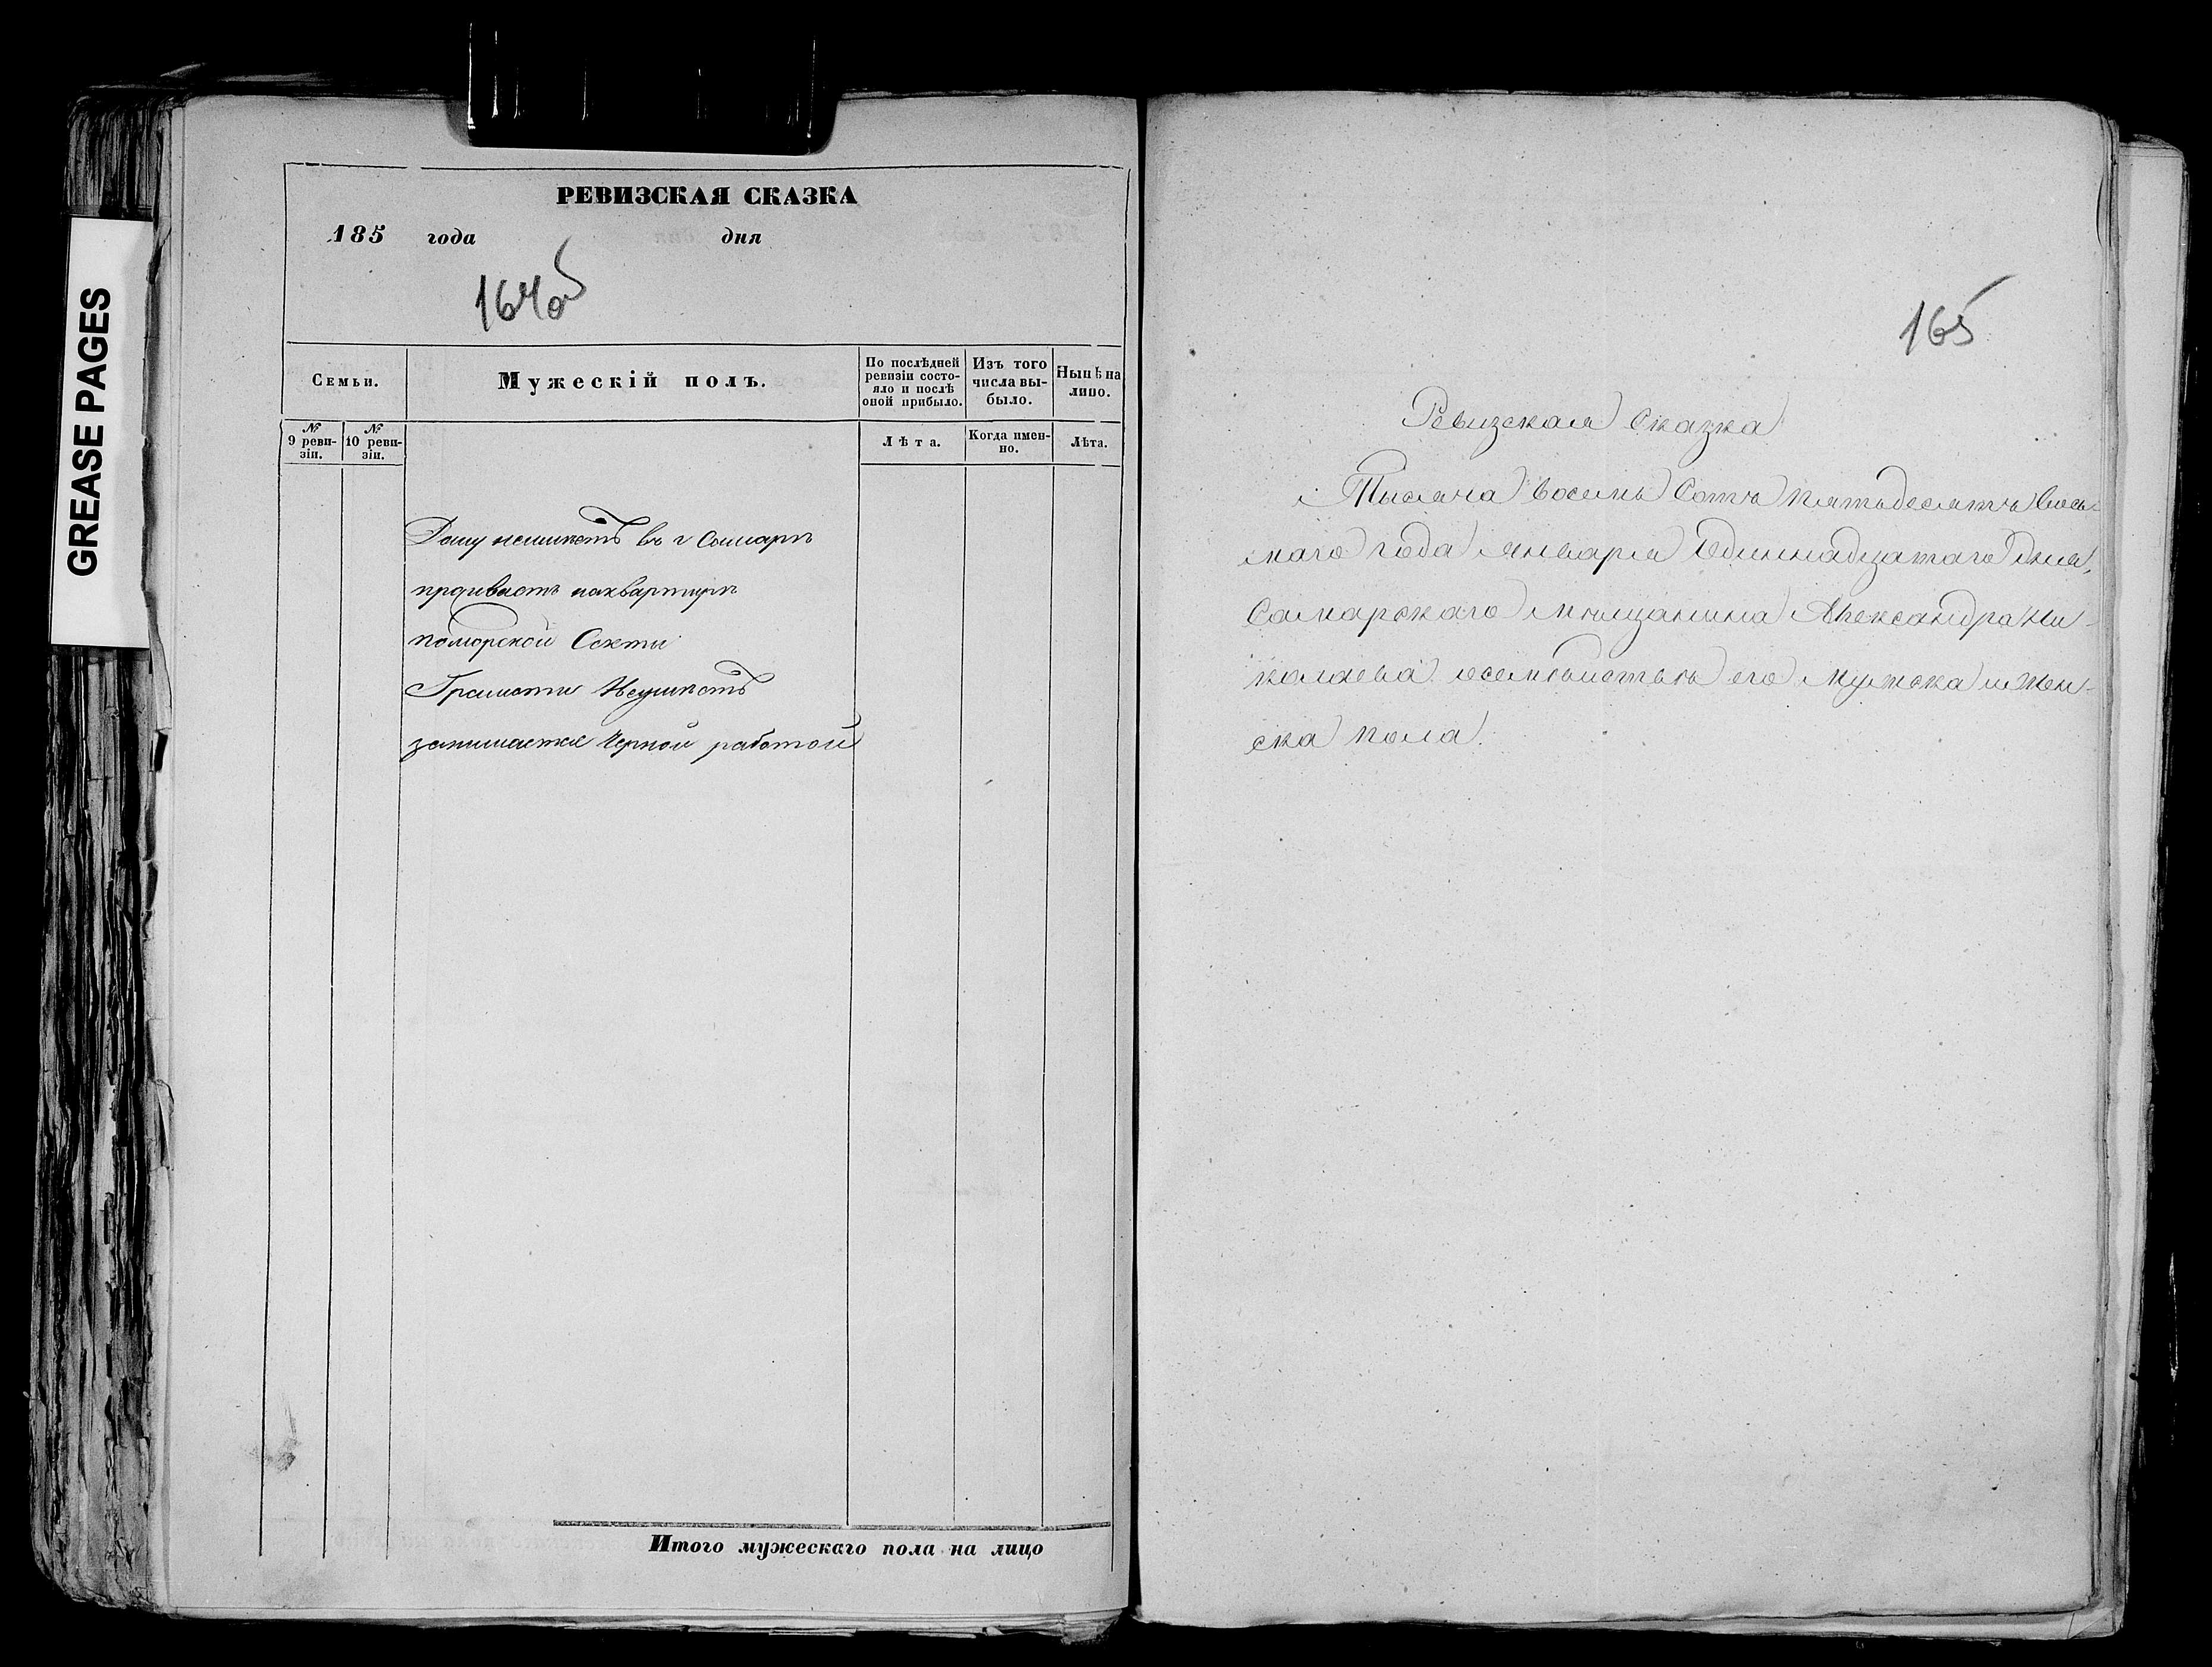 GREASE PAGES
РЕВИЗСКАЯ СКАЗКА
185 года дня
164об
Семьи.
Мужескій полъ.
По послѣдней ревизіи состо-
яло и послѣ оной прибыло.
Изъ того числа вы-
было.
Нынѣ на лицо.
№ 9 реви-
зіи.
№ 10 реви-
зіи.
Лѣта.
Когда имен-
но.
Лѣта.
Дому неимѣетъ въ г Самарѣ
проживаетъ на квартирѣ
поморской Секты
Грамоти Неумѣетъ
занимается Черной работой
Итого мужескаго пола на лицо
165
Ревизская Сказка
Тысяча восемь Сотъ пятьдесятъ вось-
маго года января Одиннадцатаго дня,
Самарскаго мѣщанина Александра Ни-
колаева осемействѣ его мужска и жен-
ска пола.